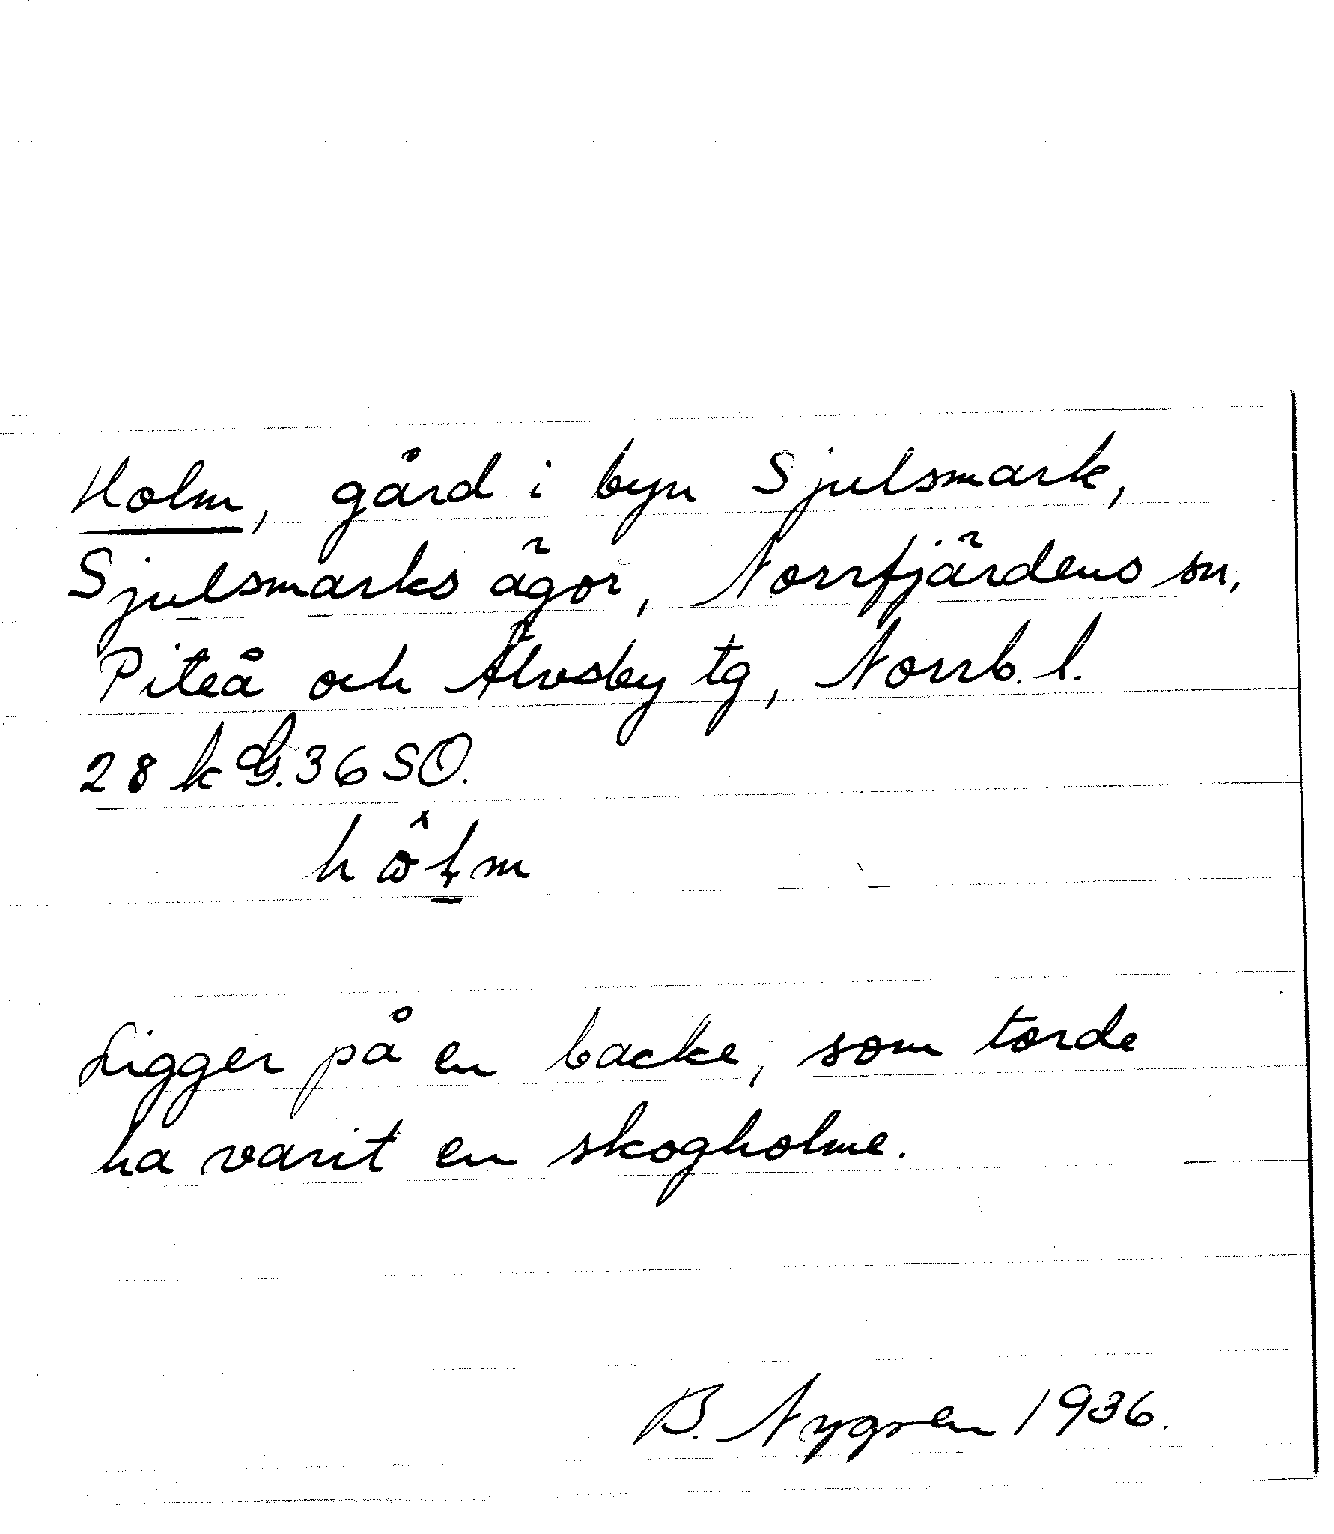 Holm, gård i byn Sjulsmark,
Sjulsmarks ägor, Norrfjärdens sn,
Piteå och Älvsby tg, Norrb. l.
28 k G. 36 SO.
hôlm
Ligger på en backe, som torde
ha varit en skogholme.
B. Nygren 1936.